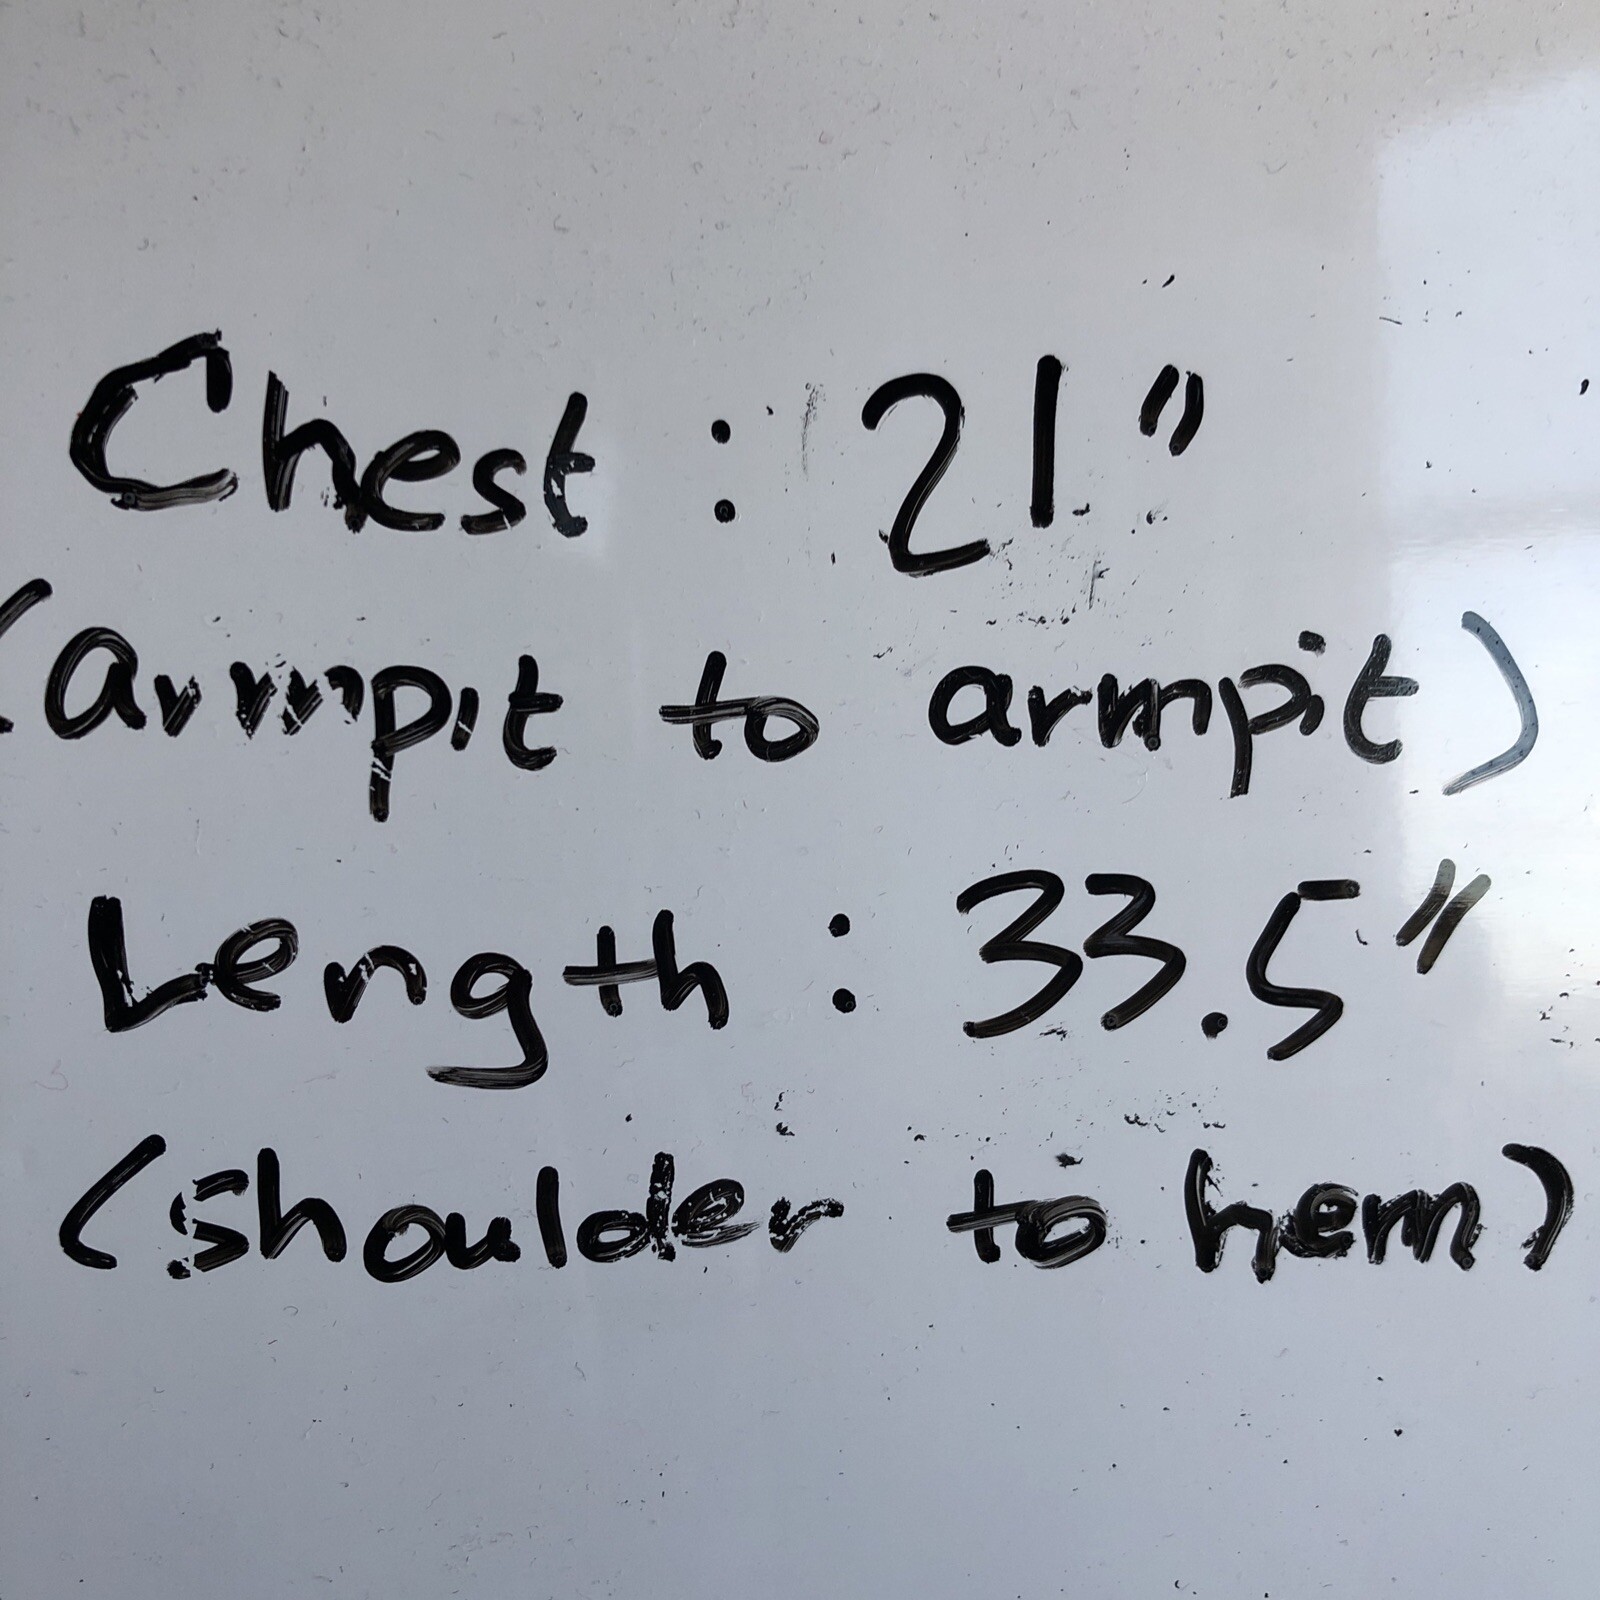 Chest : 21"
(armpit to armpit)
Length : 33.5"
(shoulder to hem)